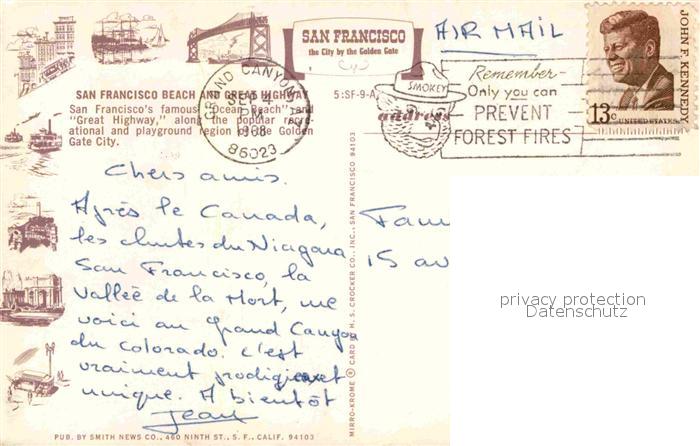 SAN FRANCISCO
the City by the Golden Gate
AIR MAIL
JOHN F. KENNEDY
13c
UNITED STATES
GRAND CANYON
SEP 4
PM
1968
86023
SMOKEY
Remember-
Only you can
PREVENT
FOREST FIRES
SAN FRANCISCO BEACH AND GREAT HIGHWAY
San Francisco's famous "Ocean Beach" and
"Great Highway," along the popular recre-
ational and playground region of the Golden
Gate City.
5:SF-9-A
address
Chers amis.
Après le Canada,
les chutes du Niagara
San Francisco, la
Vallée de la Mort, me
voici au Grand Canyon
du Colorado. c'est
vraiment prodigieux et
unique. A bientôt
Jean
Fam
15 av
MIRRO-KROME ® CARD BY H. S. CROCKER CO., INC., SAN FRANCISCO 94103
PUB. BY SMITH NEWS CO., 460 NINTH ST., S. F., CALIF. 94103
privacy protection
Datenschutz